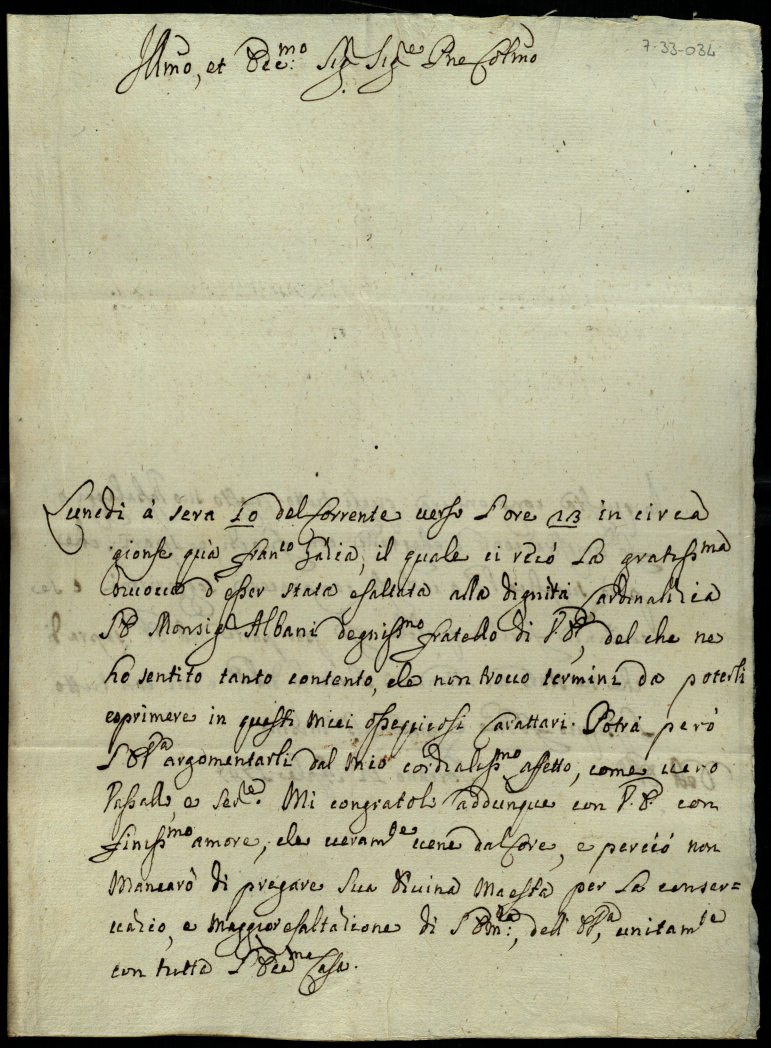 7-33-034
Illmo, et Ecc:mo Sigr Sigre Pne Colmo
Lunedi à sera 10 del Corrente verso l'ore 23 in circa
gionse quà Franco Jalia, il quale ci recò la gratissma
nuova d'esser stata esaltata alla dignità Cardinalizia
S.E. Monsigr Albani degnissmo fratello di V.E., del che ne
hò sentito tanto contento, che non trovo termini da poterli
esprimere in questi miei ossequiosi Carattari. Potrà però
l'E.Va argomentarli dal mio cordialissmo affetto, come vero
Vassallo, e Serre. Mi congratolo addunque con V.E. con
finissmo amore, che veramte vene dal Core, e perciò non
Mancarò di pregare Sua Divina Maestà per la conser=
vazio, e Maggior esaltazione di S. Emza, dell'E.Va, unitamte
con tutta l'Eccma Casa.